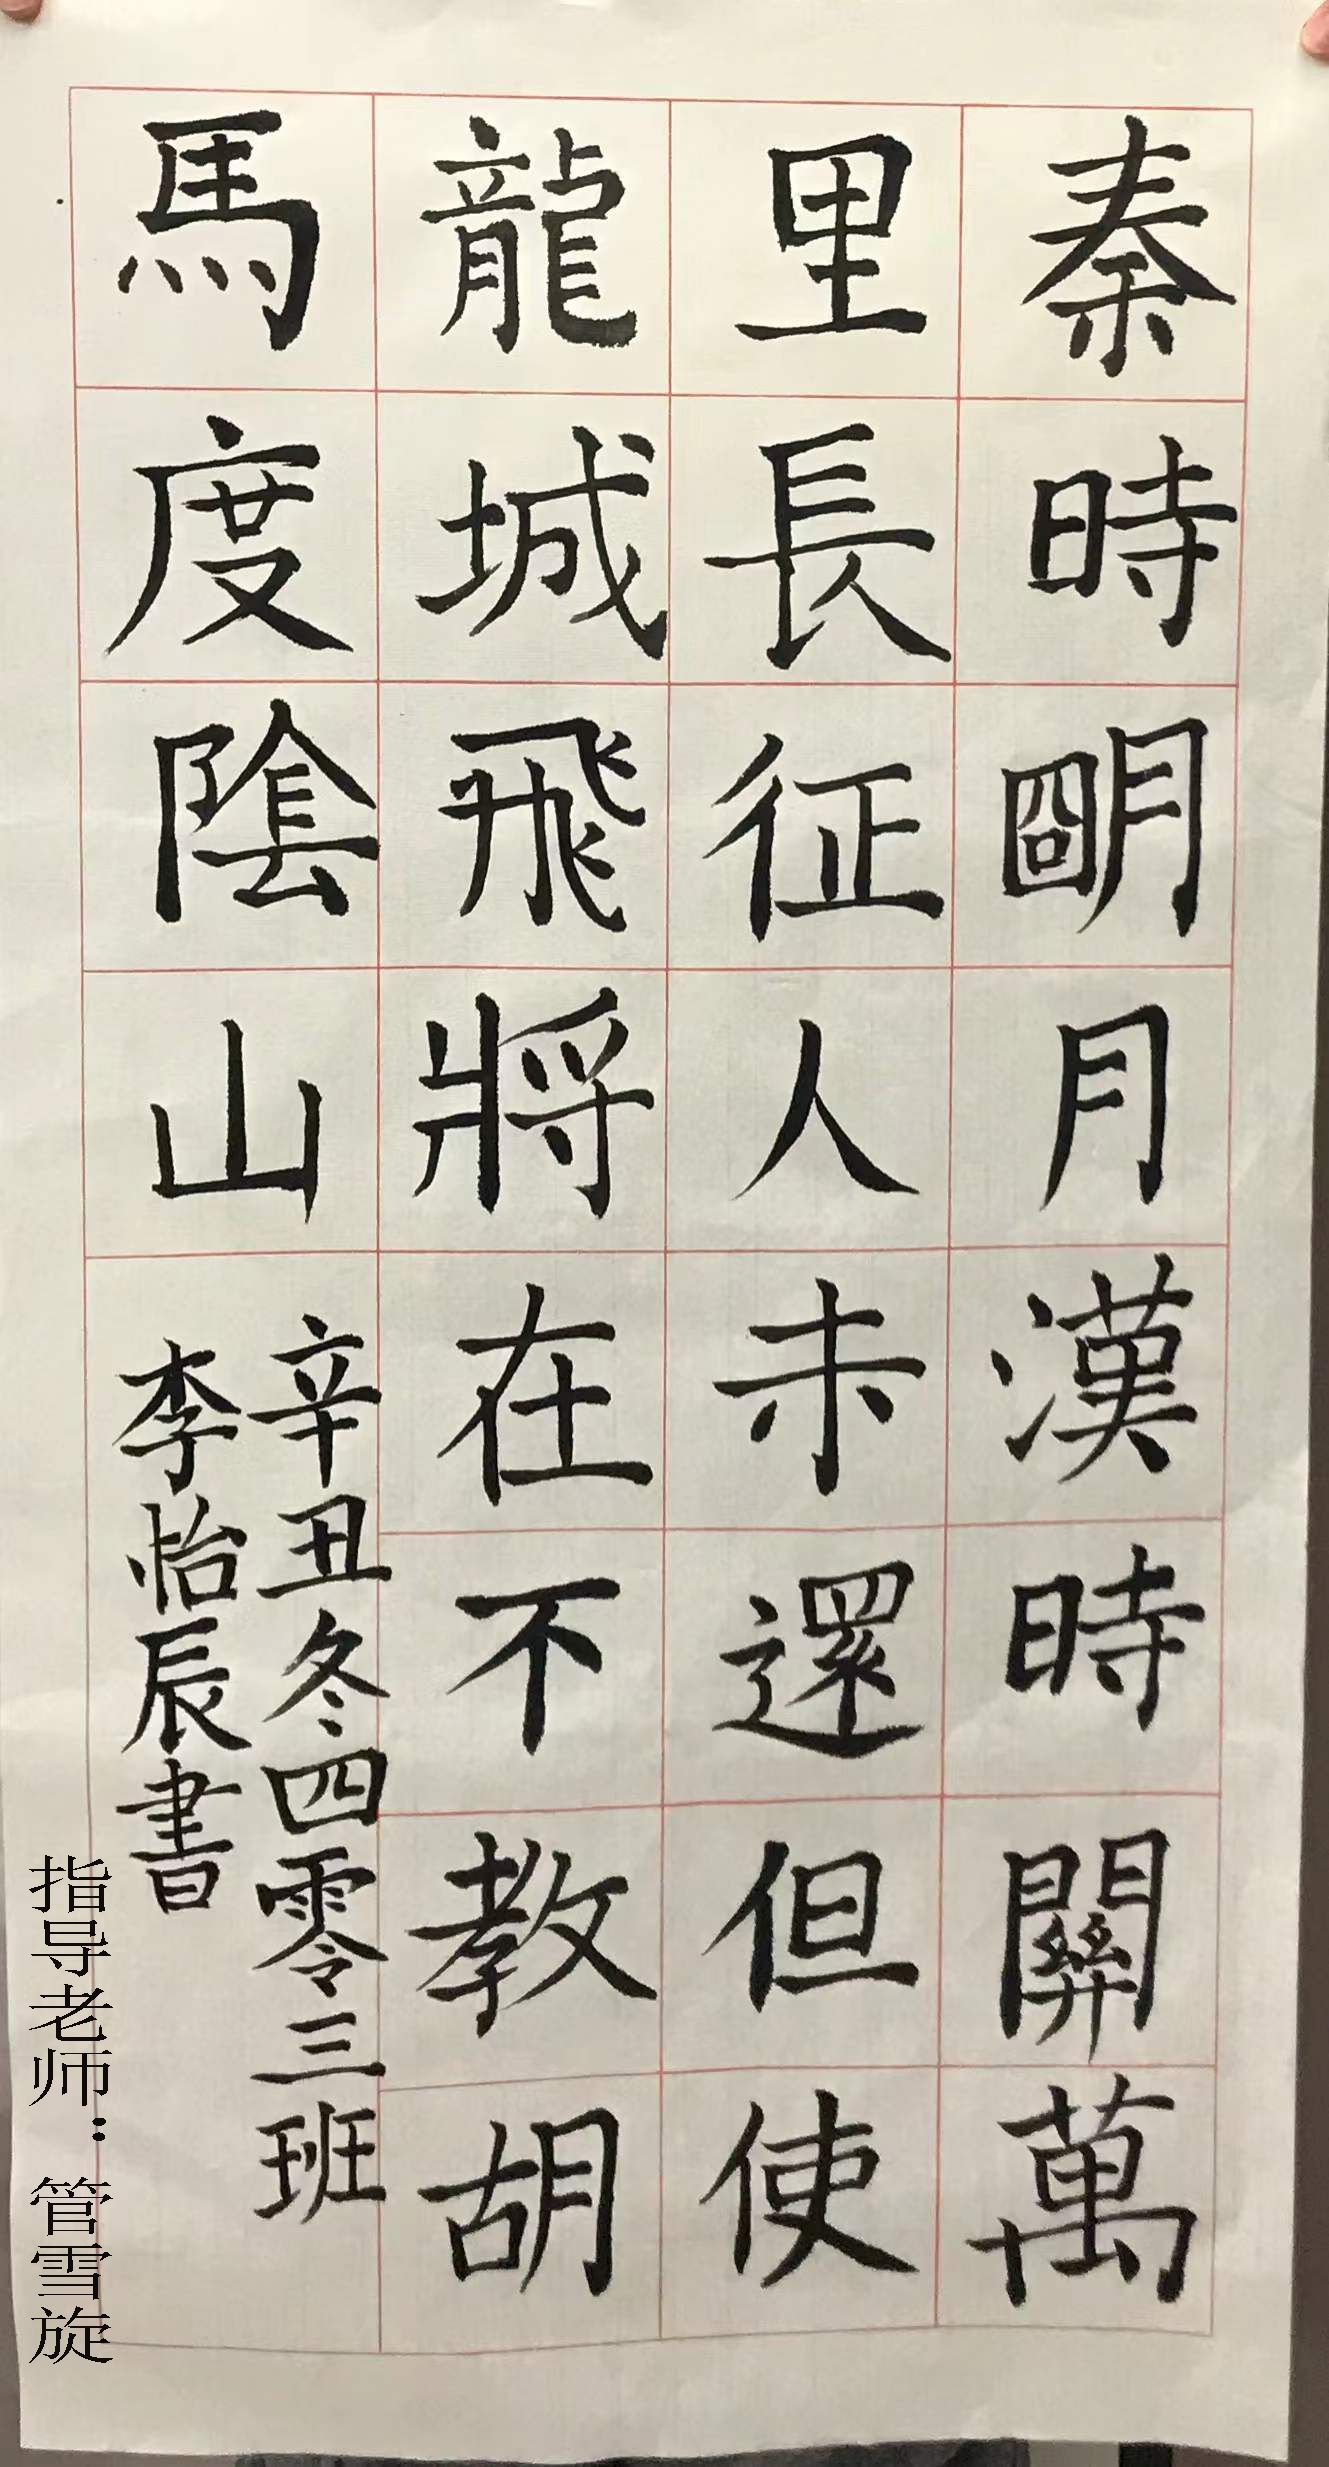 秦時朙月漢時關萬
里長征人未還但使
龍城飛將在不教胡
馬度陰山
辛丑冬四零三班
李怡辰書
指导老师：管雪旋